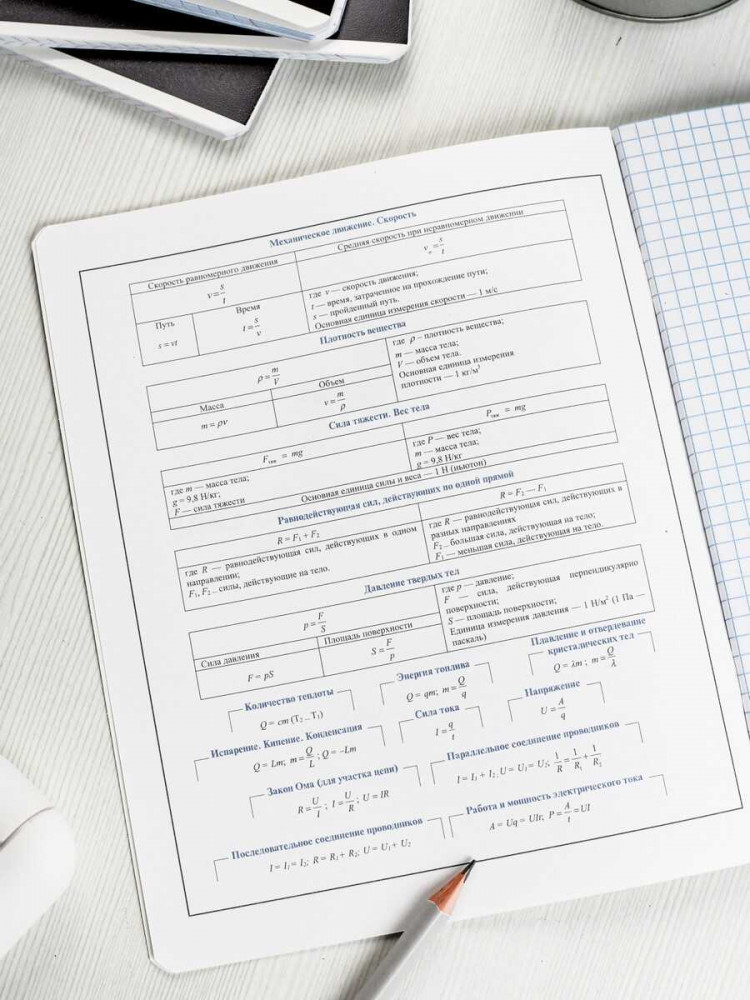 Механическое движение. Скорость
Скорость равномерного движения
Средняя скорость при неравномерном движении
v = s/t
v = s/t
Путь
Время
s = vt
t = s/v
где v — скорость движения;
t — время, затраченное на прохождение пути;
s — пройденный путь.
Основная единица измерения скорости — 1 м/с
Плотность вещества
ρ = m/V
Масса
Объем
m = ρv
v = m/ρ
где ρ – плотность вещества;
m — масса тела;
V — объем тела.
Основная единица измерения
плотности — 1 кг/м³
Сила тяжести. Вес тела
Fтяж = mg
Pтяж = mg
где m — масса тела;
g = 9,8 Н/кг;
F — сила тяжести
где P — вес тела;
m — масса тела;
g = 9,8 Н/кг
Основная единица силы и веса — 1 Н (ньютон)
Равнодействующая сил, действующих по одной прямой
R = F₁ + F₂
R = F₂ — F₁
где R — равнодействующая сил, действующих в одном
направлении;
F₁, F₂ – силы, действующие на тело.
где R — равнодействующая сил, действующих в
разных направлениях
F₂ – большая сила, действующая на тело;
F₁ — меньшая сила, действующая на тело.
Давление твердых тел
p = F/S
Сила давления
Площадь поверхности
F = pS
S = F/p
где p — давление;
F — сила, действующая перпендикулярно
поверхности;
S — площадь поверхности;
Единица измерения давления — 1 Н/м² (1 Па —
паскаль)
Количество теплоты
Q = cm (T₂ – T₁)
Энергия топлива
Q = qm; m = Q/q
Плавление и отвердевание
кристалических тел
Q = λm ; m = Q/λ
Испарение. Кипение. Конденсация
Q = Lm; m = Q/L ; Q = –Lm
Сила тока
I = q/t
Напряжение
U = A/q
Закон Ома (для участка цепи)
R = U/I ; I = U/R ; U = IR
Параллельное соединение проводников
I = I₁ + I₂; U = U₁ = U₂; 1/R = 1/R₁ + 1/R₂
Последовательное соединение проводников
I = I₁ = I₂; R = R₁ + R₂; U = U₁ + U₂
Работа и мощность электрического тока
A = Uq = UIt, P = A/t = UI